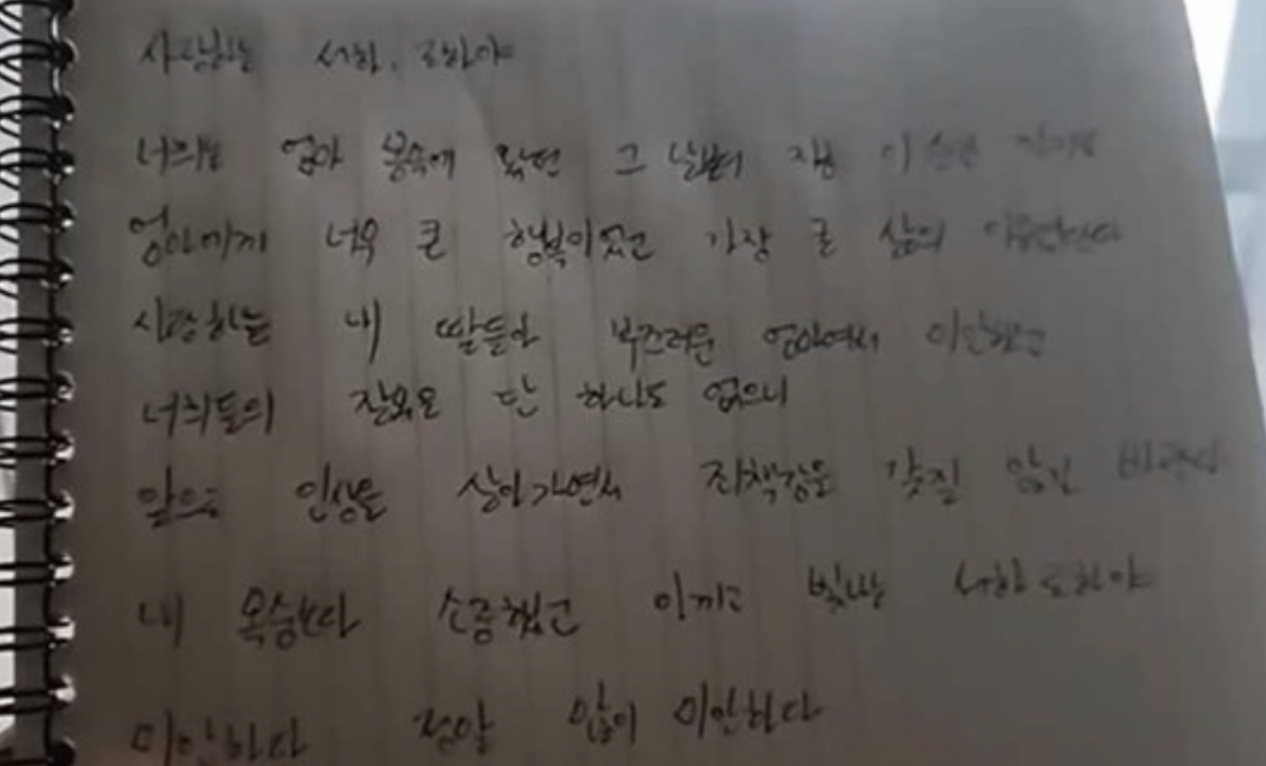 사랑하는 서하, 로하야
너희는 엄마 몸속에 왔던 그 날부터 지금 이 순간 까지도
엄마에게 너무 큰 행복이었고 가장 큰 삶의 이유란단다
사랑하는 내 딸들아 부끄러운 엄마여서 미안했고
너희들의 잘못은 단 하나도 없으니
앞으로 인생을 살아가면서 죄책감을 갖질 않길 바란다
내 목숨보다 소중했고 아끼고 빛나는 서하 로하야
미안하다 정말 많이 미안하다